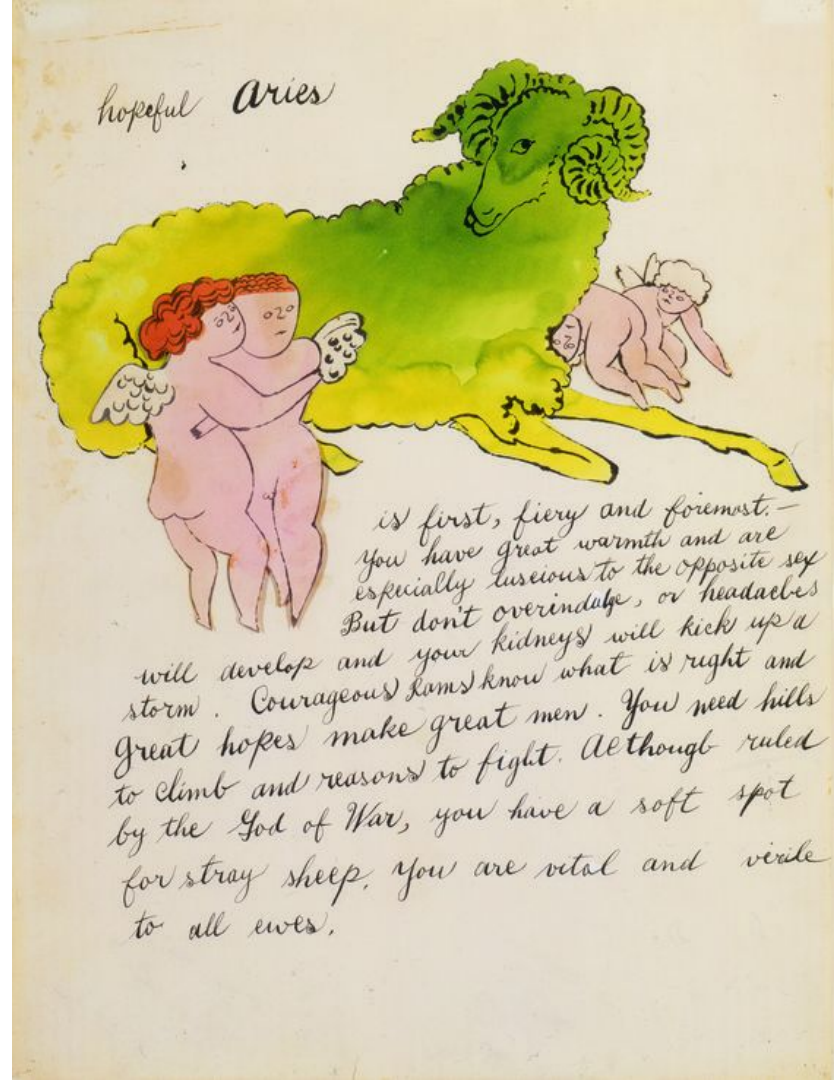 hopeful Aries
is first, fiery and foremost.—
you have great warmth and are
especially luscious to the opposite sex
But don't overindulge, or headaches
will develop and your kidneys will kick up a
storm. Courageous Rams know what is right and
great hopes make great men. You need hills
to climb and reasons to fight. Although ruled
by the God of War, you have a soft spot
for stray sheep. You are vital and virile
to all ewes.